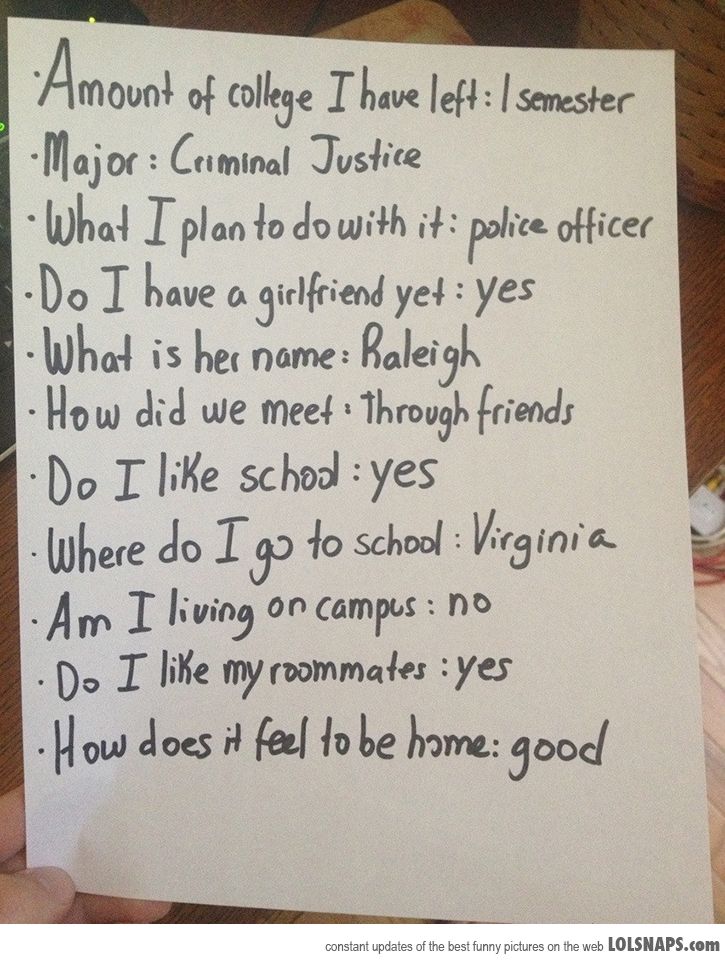 · Amount of college I have left: 1 semester
· Major: Criminal Justice
· What I plan to do with it: police officer
· Do I have a girlfriend yet: yes
· What is her name: Raleigh
· How did we meet: through friends
· Do I like school: yes
· Where do I go to school: Virginia
· Am I living on campus: no
· Do I like my roommates: yes
· How does it feel to be home: good
constant updates of the best funny pictures on the web LOLSNAPS.com